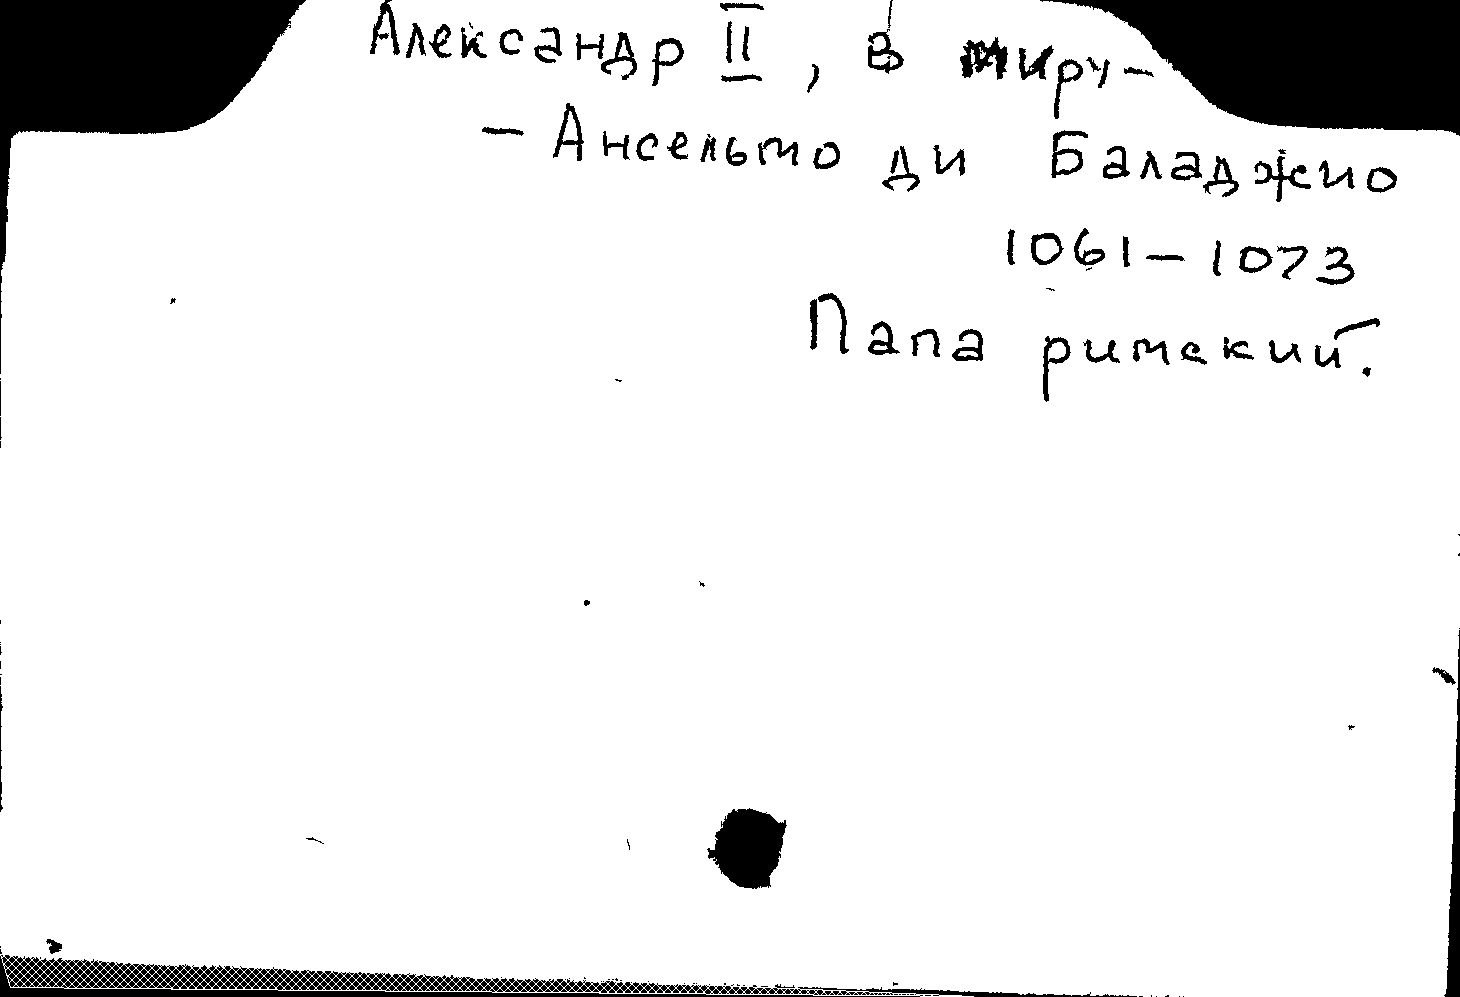 Александр II, в миру -
- Ансельмо ди Баладжио
1061 - 1073
Папа римский.